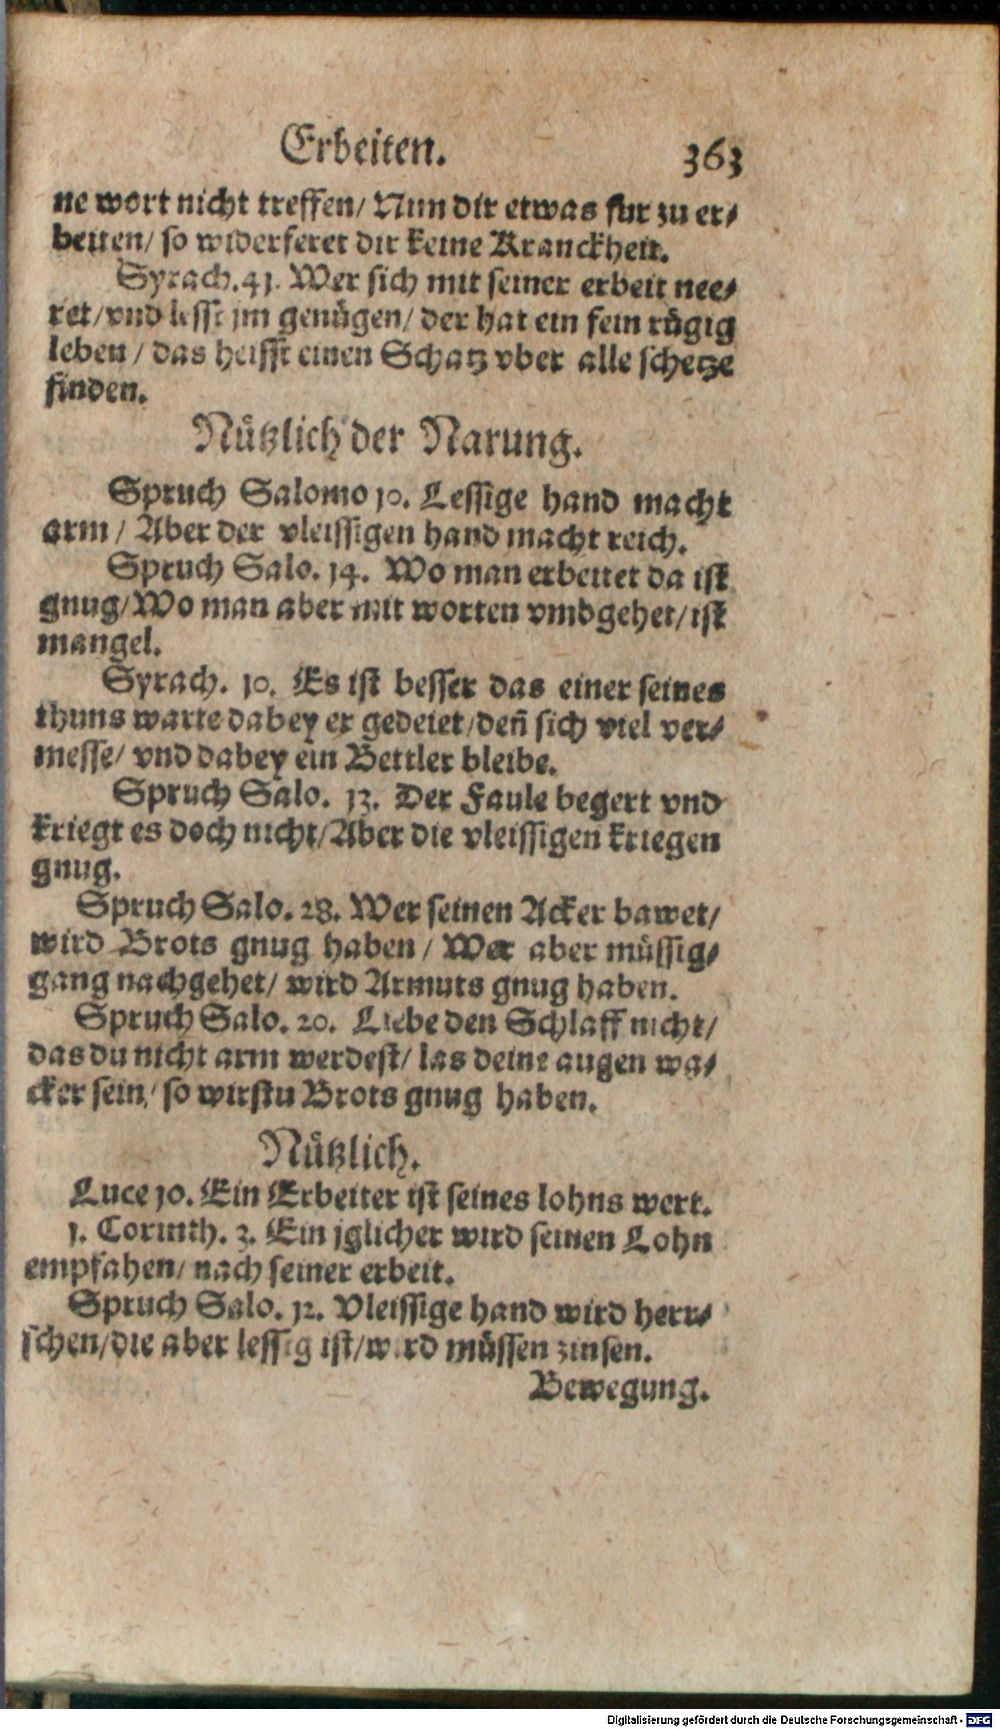 Erbeiten. 363
ne wort nicht treffen/ Nim dir etwas fur zu er⸗
beiten/ so widerferet dir keine Kranckheit.
Syrach. 41. Wer sich mit seiner erbeit nee⸗
ret/ vnd lesst jm genügen/ der hat ein fein rügig
leben/ das heisst einen Schatz vber alle schetze
finden.
Nützlich der Narung.
Spruch Salomo 10. Lessige hand macht
arm/ Aber der vleissigen hand macht reich.
Spruch Salo. 14. Wo man erbeitet da ist
gnug/ Wo man aber mit worten vmbgehet/ ist
mangel.
Syrach. 10. Es ist besser das einer seines
thuns warte dabey er gedeiet/ deñ sich viel ver⸗
messe/ vnd dabey ein Bettler bleibe.
Spruch Salo. 13. Der Faule begert vnd
kriegt es doch nicht/ Aber die vleissigen kriegen
gnug.
Spruch Salo. 28. Wer seinen Acker bawet/
wird Brots gnug haben/ Wer aber müssig⸗
gang nachgehet/ wird Armuts gnug haben.
Spruch Salo. 20. Liebe den Schlaff nicht/
das du nicht arm werdest/ las deine augen wa⸗
cker sein/ so wirstu Brots gnug haben.
Nützlich.
Luce 10. Ein Erbeiter ist seines lohns wert.
1. Corinth. 3. Ein jglicher wird seinen Lohn
empfahen/ nach seiner erbeit.
Spruch Salo. 12. Vleissige hand wird herr⸗
schen/ die aber lessig ist/ wird müssen zinsen.
Bewegung.
Digitalisierung gefördert durch die Deutsche Forschungsgemeinschaft - DFG